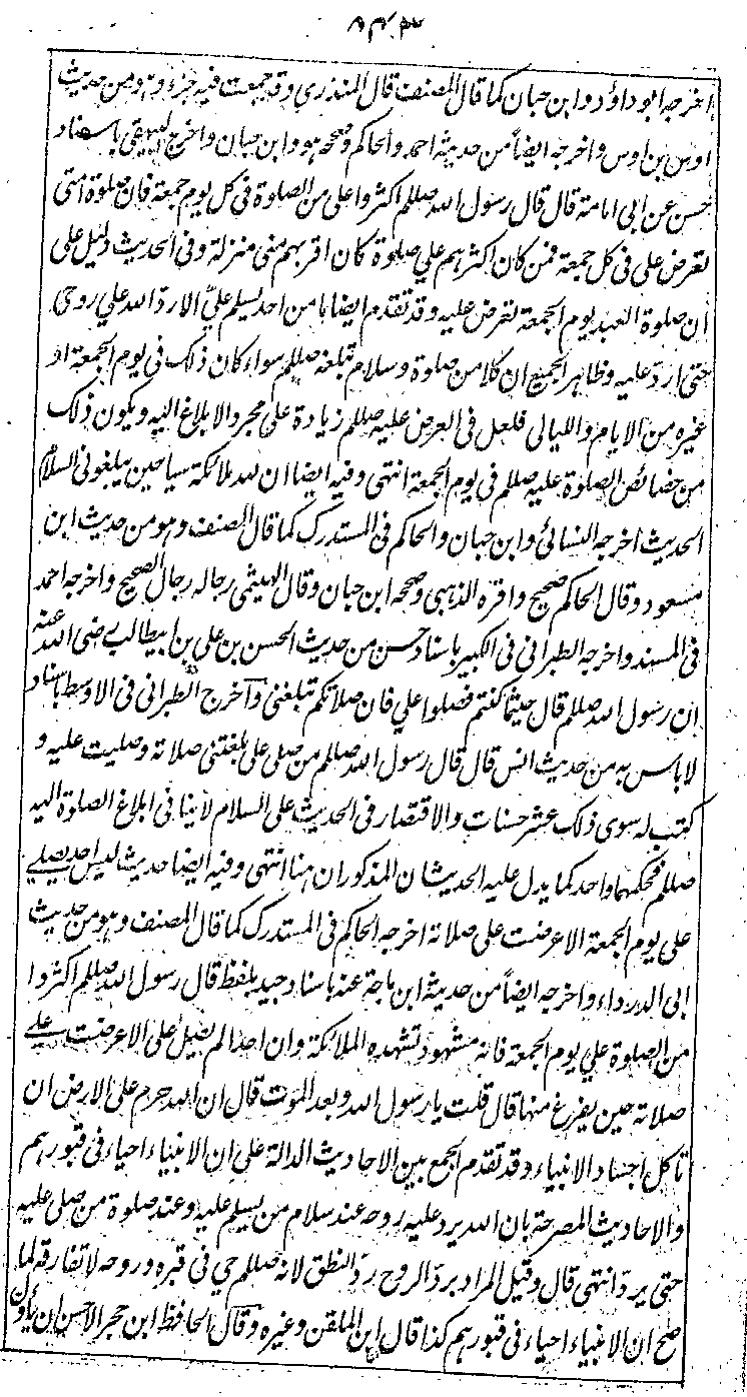 ٨٤٣
اخرجه ابو داؤد وابن حبان كما قال المصنف قال المنذري وقد جمعت فيه جزء وهو من حديث
اوس بن اوس واخرجه ايضاً من حديثه احمد والحاكم وصححه هو وابن حبان واخرج البيهقى باسناد
حسن عن ابى امامة قال قال رسول الله صللم اكثروا على من الصلوة فى كل يوم جمعة فان صلوة امتى
تعرض على فى كل جمعة فمن كان اكثرهم علي صلوة كان اقربهم منى منزلة وفى الحديث دليل على
ان صلوة العبد يوم الجمعة تعرض عليه وقد تقدم ايضا ما من احد يسلم عليّ الا رد الله علي روحى
حتى ارد عليه وظاهر الجميع ان كلا من صلوة وسلام تبلغه صللم سواء كان ذلك فى يوم الجمعة او
غيره من الايام والليالى فلعل فى العرض عليه صللم زيادة على مجرد الابلاغ اليه ويكون ذلك
من خصائص الصلوة عليه صللم فى يوم الجمعة انتهى وفيه ايضا ان لله ملائكة سياحين يبلغونى السلام
الحديث اخرجه النسائى وابن حبان والحاكم فى المستدرك كما قال المصنف وهو من حديث ابن
مسعود وقال الحاكم صحيح واقره الذهبى وصححه ابن حبان وقال الهيثمى رجاله رجال الصحيح واخرجه احمد
فى المسند واخرجه الطبرانى فى الكبير باسناد حسن من حديث الحسن بن على بن ابيطالب رضى الله عنه
ان رسول الله صللم قال حيثما كنتم فصلوا علي فان صلاتكم تبلغنى واخرج الطبرانى فى الاوسط باسناد
لا باس به من حديث انس قال قال رسول الله صللم من صلى على بلغتنى صلاته وصليت عليه و
كتب له سوى ذلك عشر حسنات والاقتصار فى الحديث على السلام لا ينافى ابلاغ الصلوة اليه
صللم فحكمهما واحد كما يدل عليه الحديثان المذكوران هنا انتهى وفيه ايضا حديث ليس احد يصلي
على يوم الجمعة الا عرضت على صلاته اخرجه الحاكم فى المستدرك كما قال المصنف وهو من حديث
ابى الدرداء واخرجه ايضاً من حديثه ابن ماجة عنه باسناد جيد بلفظ قال رسول الله صللم اكثروا
من الصلوة علي يوم الجمعة فانه مشهود تشهده الملائكة وان احدا لم يصل على الا عرضت على
صلاته حين يفرغ منها قال قلت يا رسول الله وبعد الموت قال ان الله حرم على الارض ان
تاكل اجساد الانبياء وقد تقدم الجمع بين الاحاديث الدالة على ان الانبياء احياء فى قبورهم
والاحاديث المصرحة بان الله يرد عليه روحه عند سلام من يسلم عليه وعند صلوة من صلى عليه
حتى يرد انتهى قال وقيل المراد برد الروح رد النطق لانه صللم حي فى قبره وروحه لا تفارقه لما
صح ان الانبياء احياء فى قبورهم كذا قال ابن الملقن وغيره وقال الحافظ ابن حجر الاحسن ان يأول